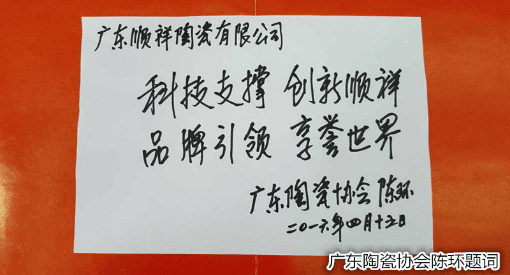 广东顺祥陶瓷有限公司
科技支撑 创新顺祥
品牌引领 享誉世界
广东陶瓷协会 陈环
二〇一六年四月十二日
广东陶瓷协会陈环题词